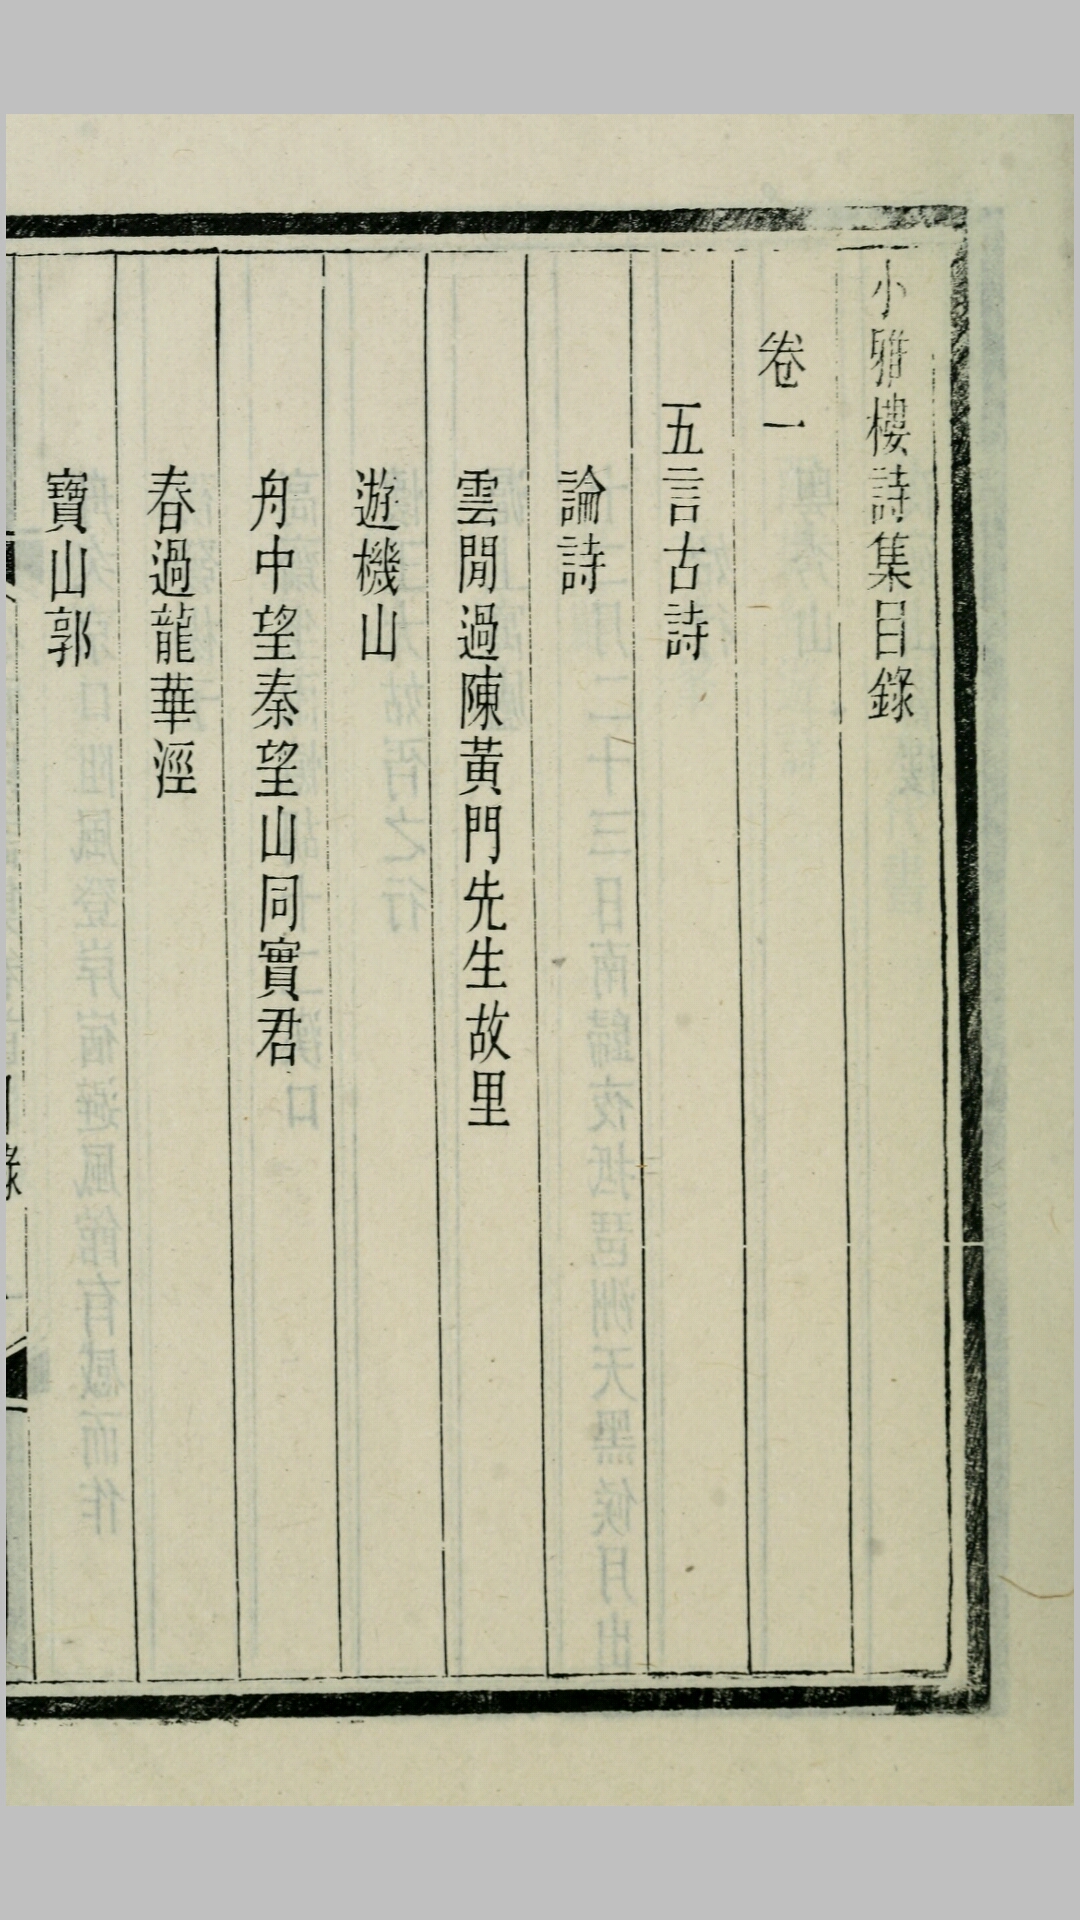 小雅樓詩集目錄
卷一
五言古詩
論詩
雲閒過陳黃門先生故里
遊機山
舟中望秦望山同實君
春過龍華涇
寶山郭